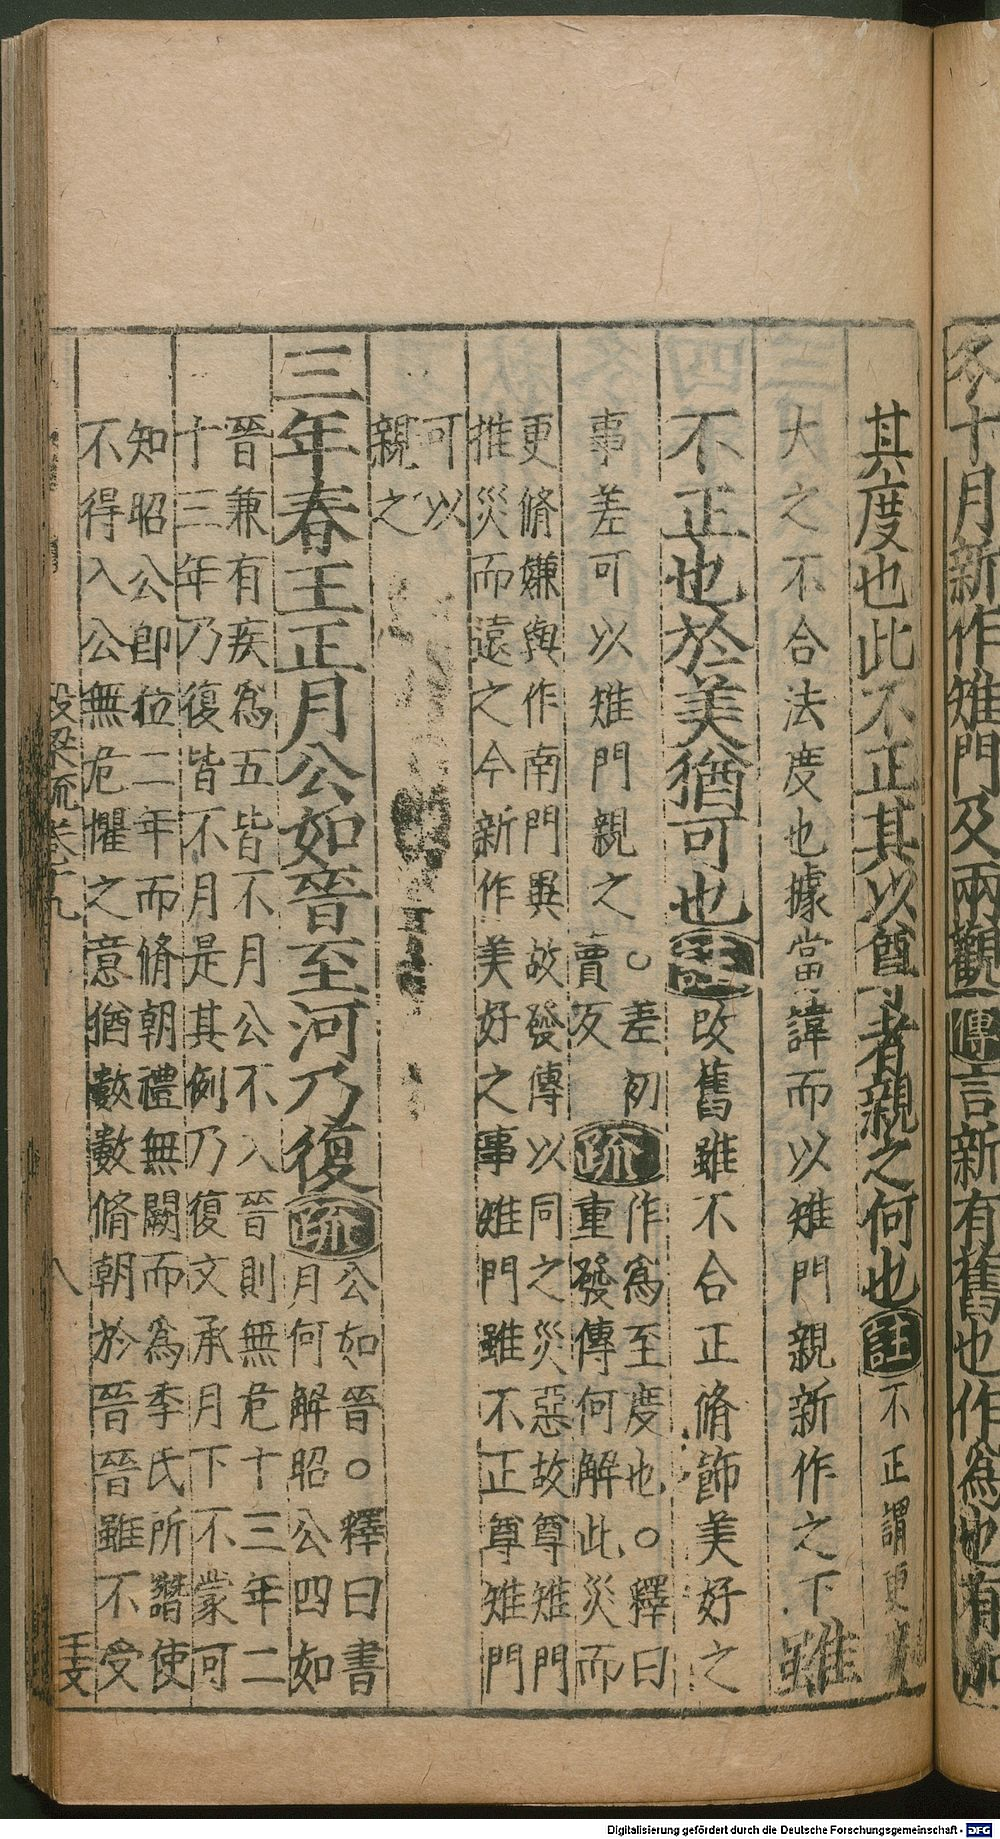 冬十月新作雉門及兩觀傳言新有舊也作爲也有加
其度也此不正其以尊者親之何也註不正謂更
大之不合法度也據當諱而以雉門親新作之下雖
不正也於美猶可也註改舊雖不合正脩飾美好之
事差可以雉門親之○差初
賣反
疏作爲至度也○釋曰
重發傳何解此災而
更脩嫌與作南門異故發傳以同之災惡故尊雉門
推災而遠之今新作美好之事雉門雖不正尊雉門
可以
親之
三年春王正月公如晉至河乃復疏公如晉○釋曰書
月何解昭公四如
晉兼有疾爲五皆不月公不入晉則無危十三年二
十三年乃復皆不月是其例乃復文承月下不蒙可
知昭公卽位二年而脩朝禮無闕而爲季氏所譖使
不得入公無危懼之意猶數數脩朝於晉晉雖不受
穀梁疏卷十九
八
王文
Digitalisierung gefördert durch die Deutsche Forschungsgemeinschaft - DFG